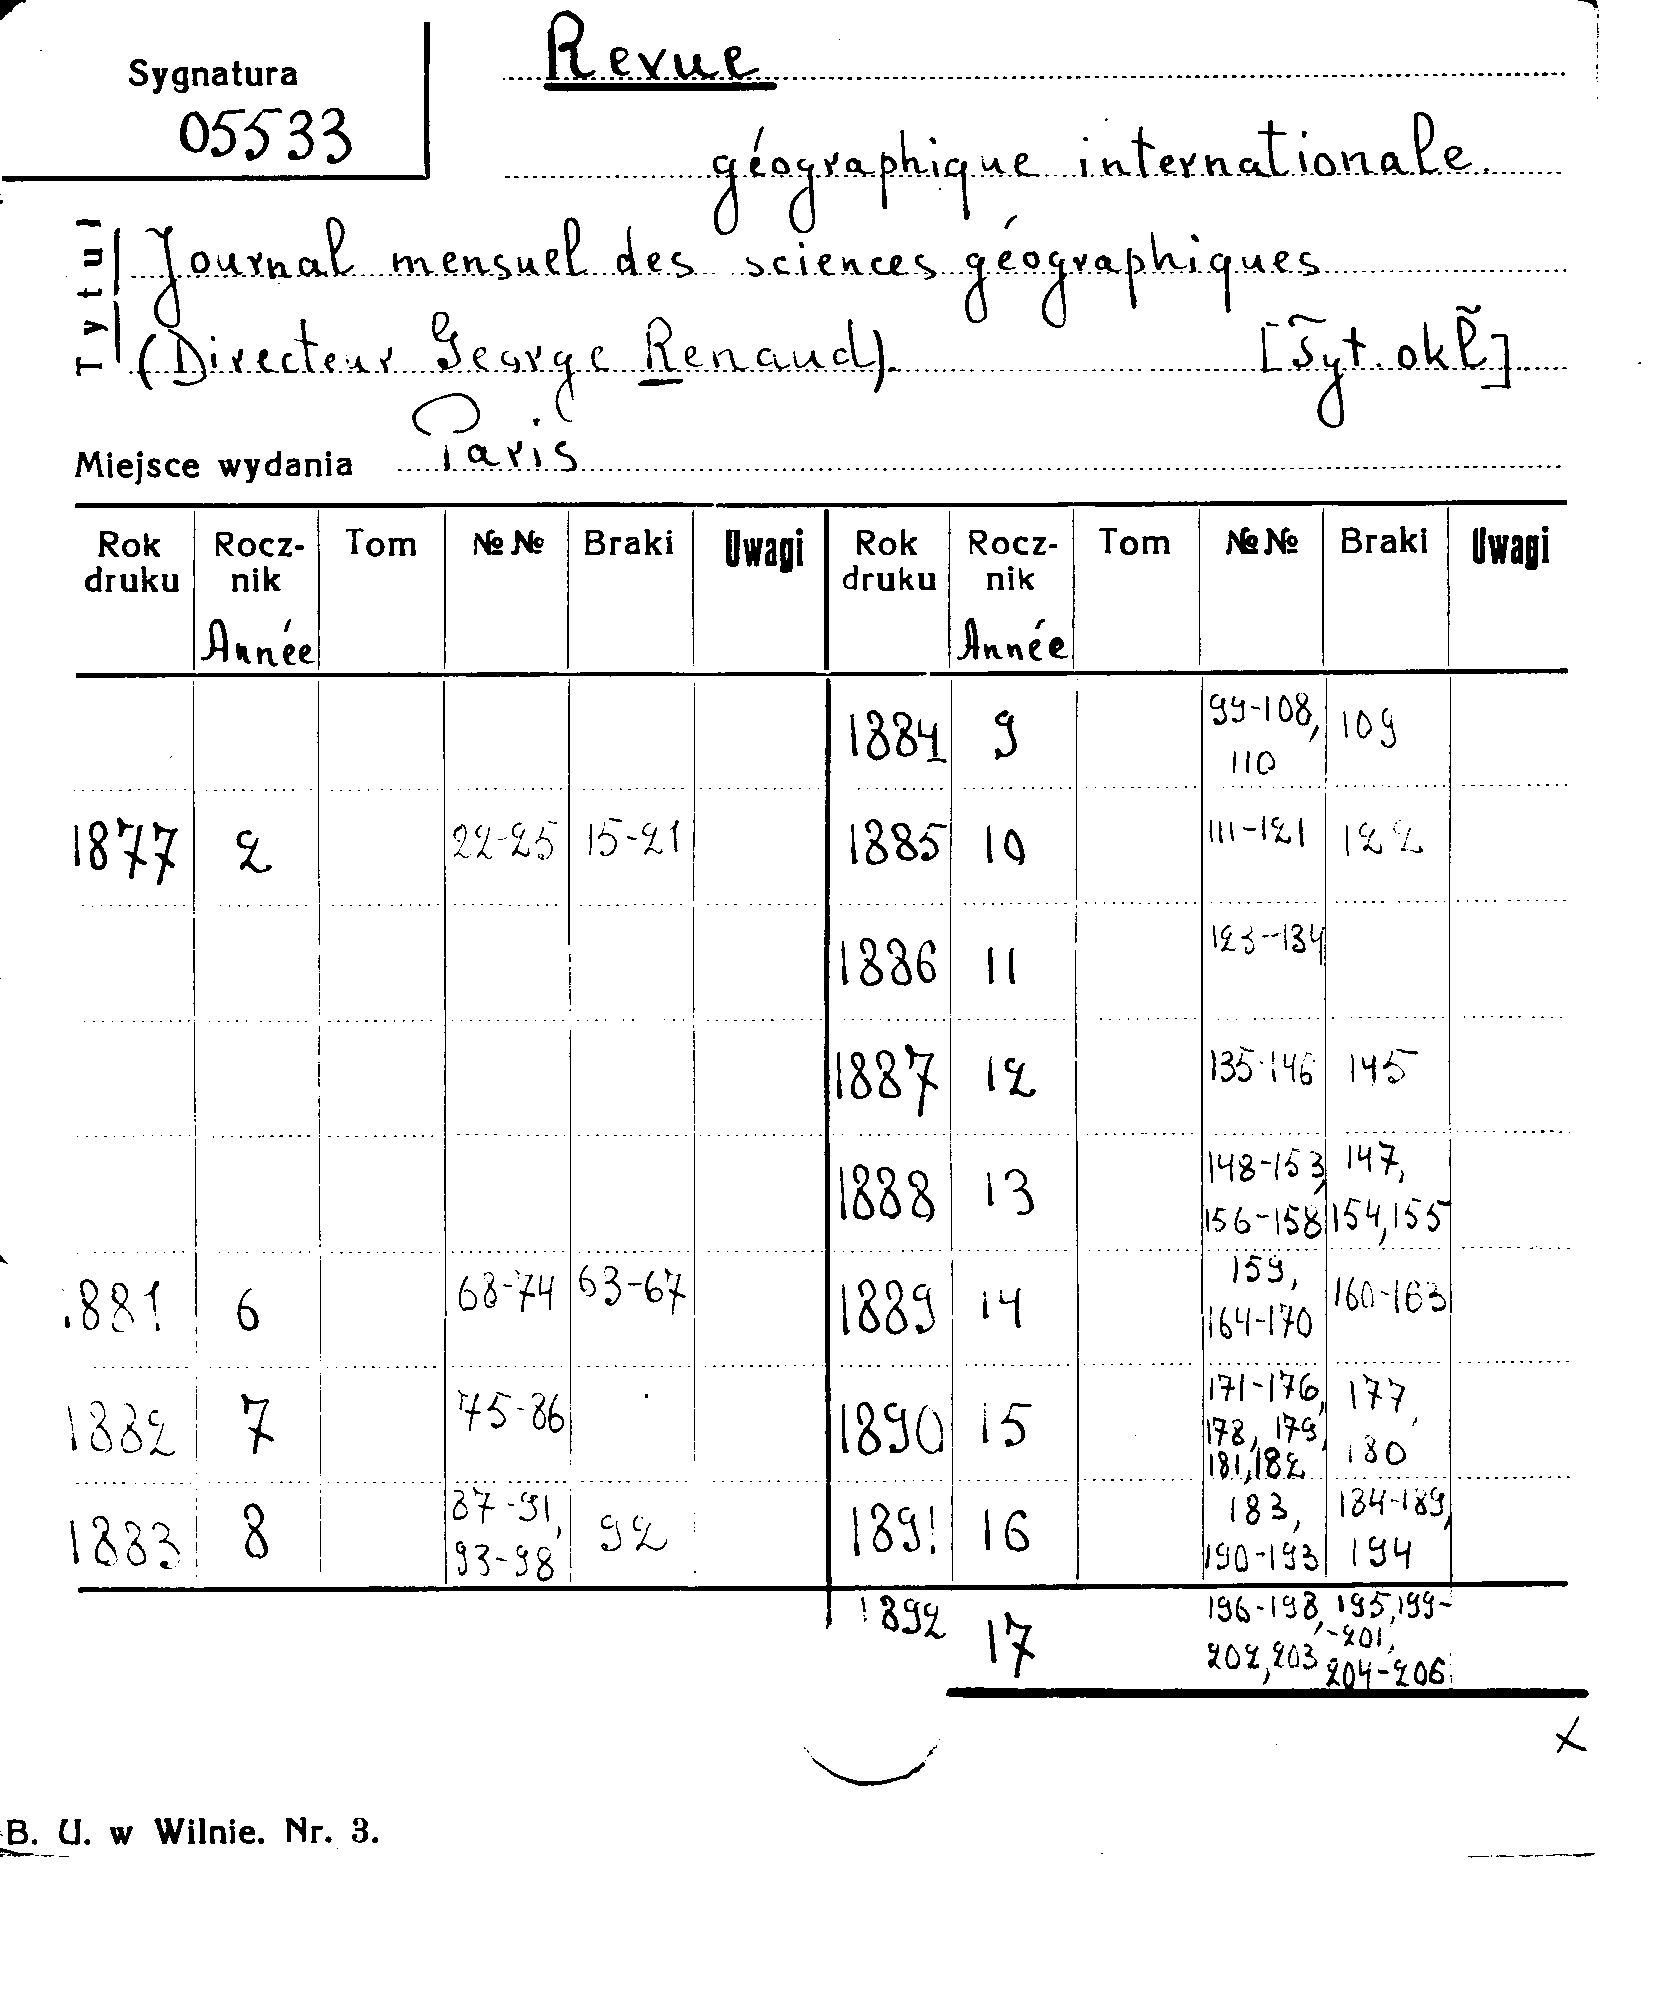 Sygnatura
05533
Revue
géographique internationale.
Tytuł
Journal mensuel des sciences géographiques
(Directeur George Renaud). [Tyt. okł]
Miejsce wydania Paris
Rok druku Rocz-nik Tom №№ Braki Uwagi Rok druku Rocz-nik Tom №№ Braki Uwagi
Année Année
1884 9 99-108, 110 109
1877 2 22-25 15-21 1885 10 111-121 122
1886 11 123-134
1887 12 135-146 145
1888 13 148-153, 156-158 147, 154,155
1881 6 68-74 63-67 1889 14 159, 164-170 160-163
1882 7 75-86 1890 15 171-176, 178, 179, 181,182 177, 180
1883 8 87-91, 93-98 92 1891 16 183, 190-193 184-189, 194
1892 17 196-198, 202,203 195,199-201, 204-206
x
B. U. w Wilnie. Nr. 3.